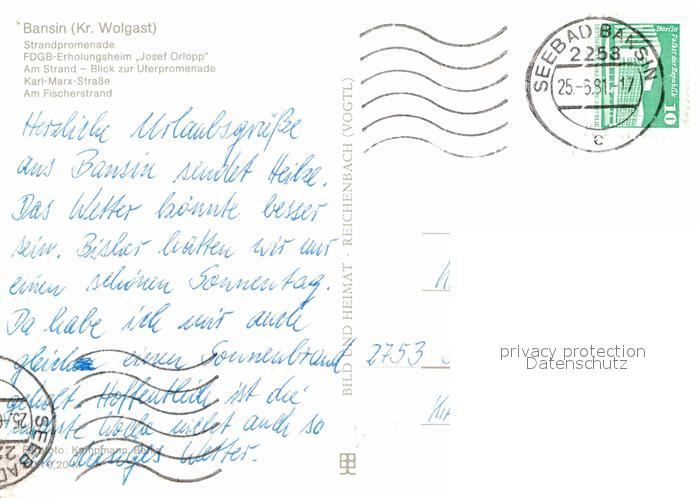 Bansin (Kr. Wolgast)
Strandpromenade
FDGB-Erholungsheim „Josef Orlopp"
Am Strand – Blick zur Uferpromenade
Karl-Marx-Straße
Am Fischerstrand
Herzliche Urlaubsgrüße
aus Bansin sendet Heike.
Das Wetter könnte besser
sein. Bisher hatten wir nur
einen schönen Sonnentag.
Da habe ich mir auch
gleich einen Sonnenbrand
geholt. Hoffentlich ist die
nächste Woche nicht auch so
ein Wetter.
BILD UND HEIMAT · REICHENBACH (VOGTL)
SEEBAD BANSIN
2253
25.-6.81.-17
c
Berlin
Palast der Republik
10
2753
privacy protection
Datenschutz
SEEBAD